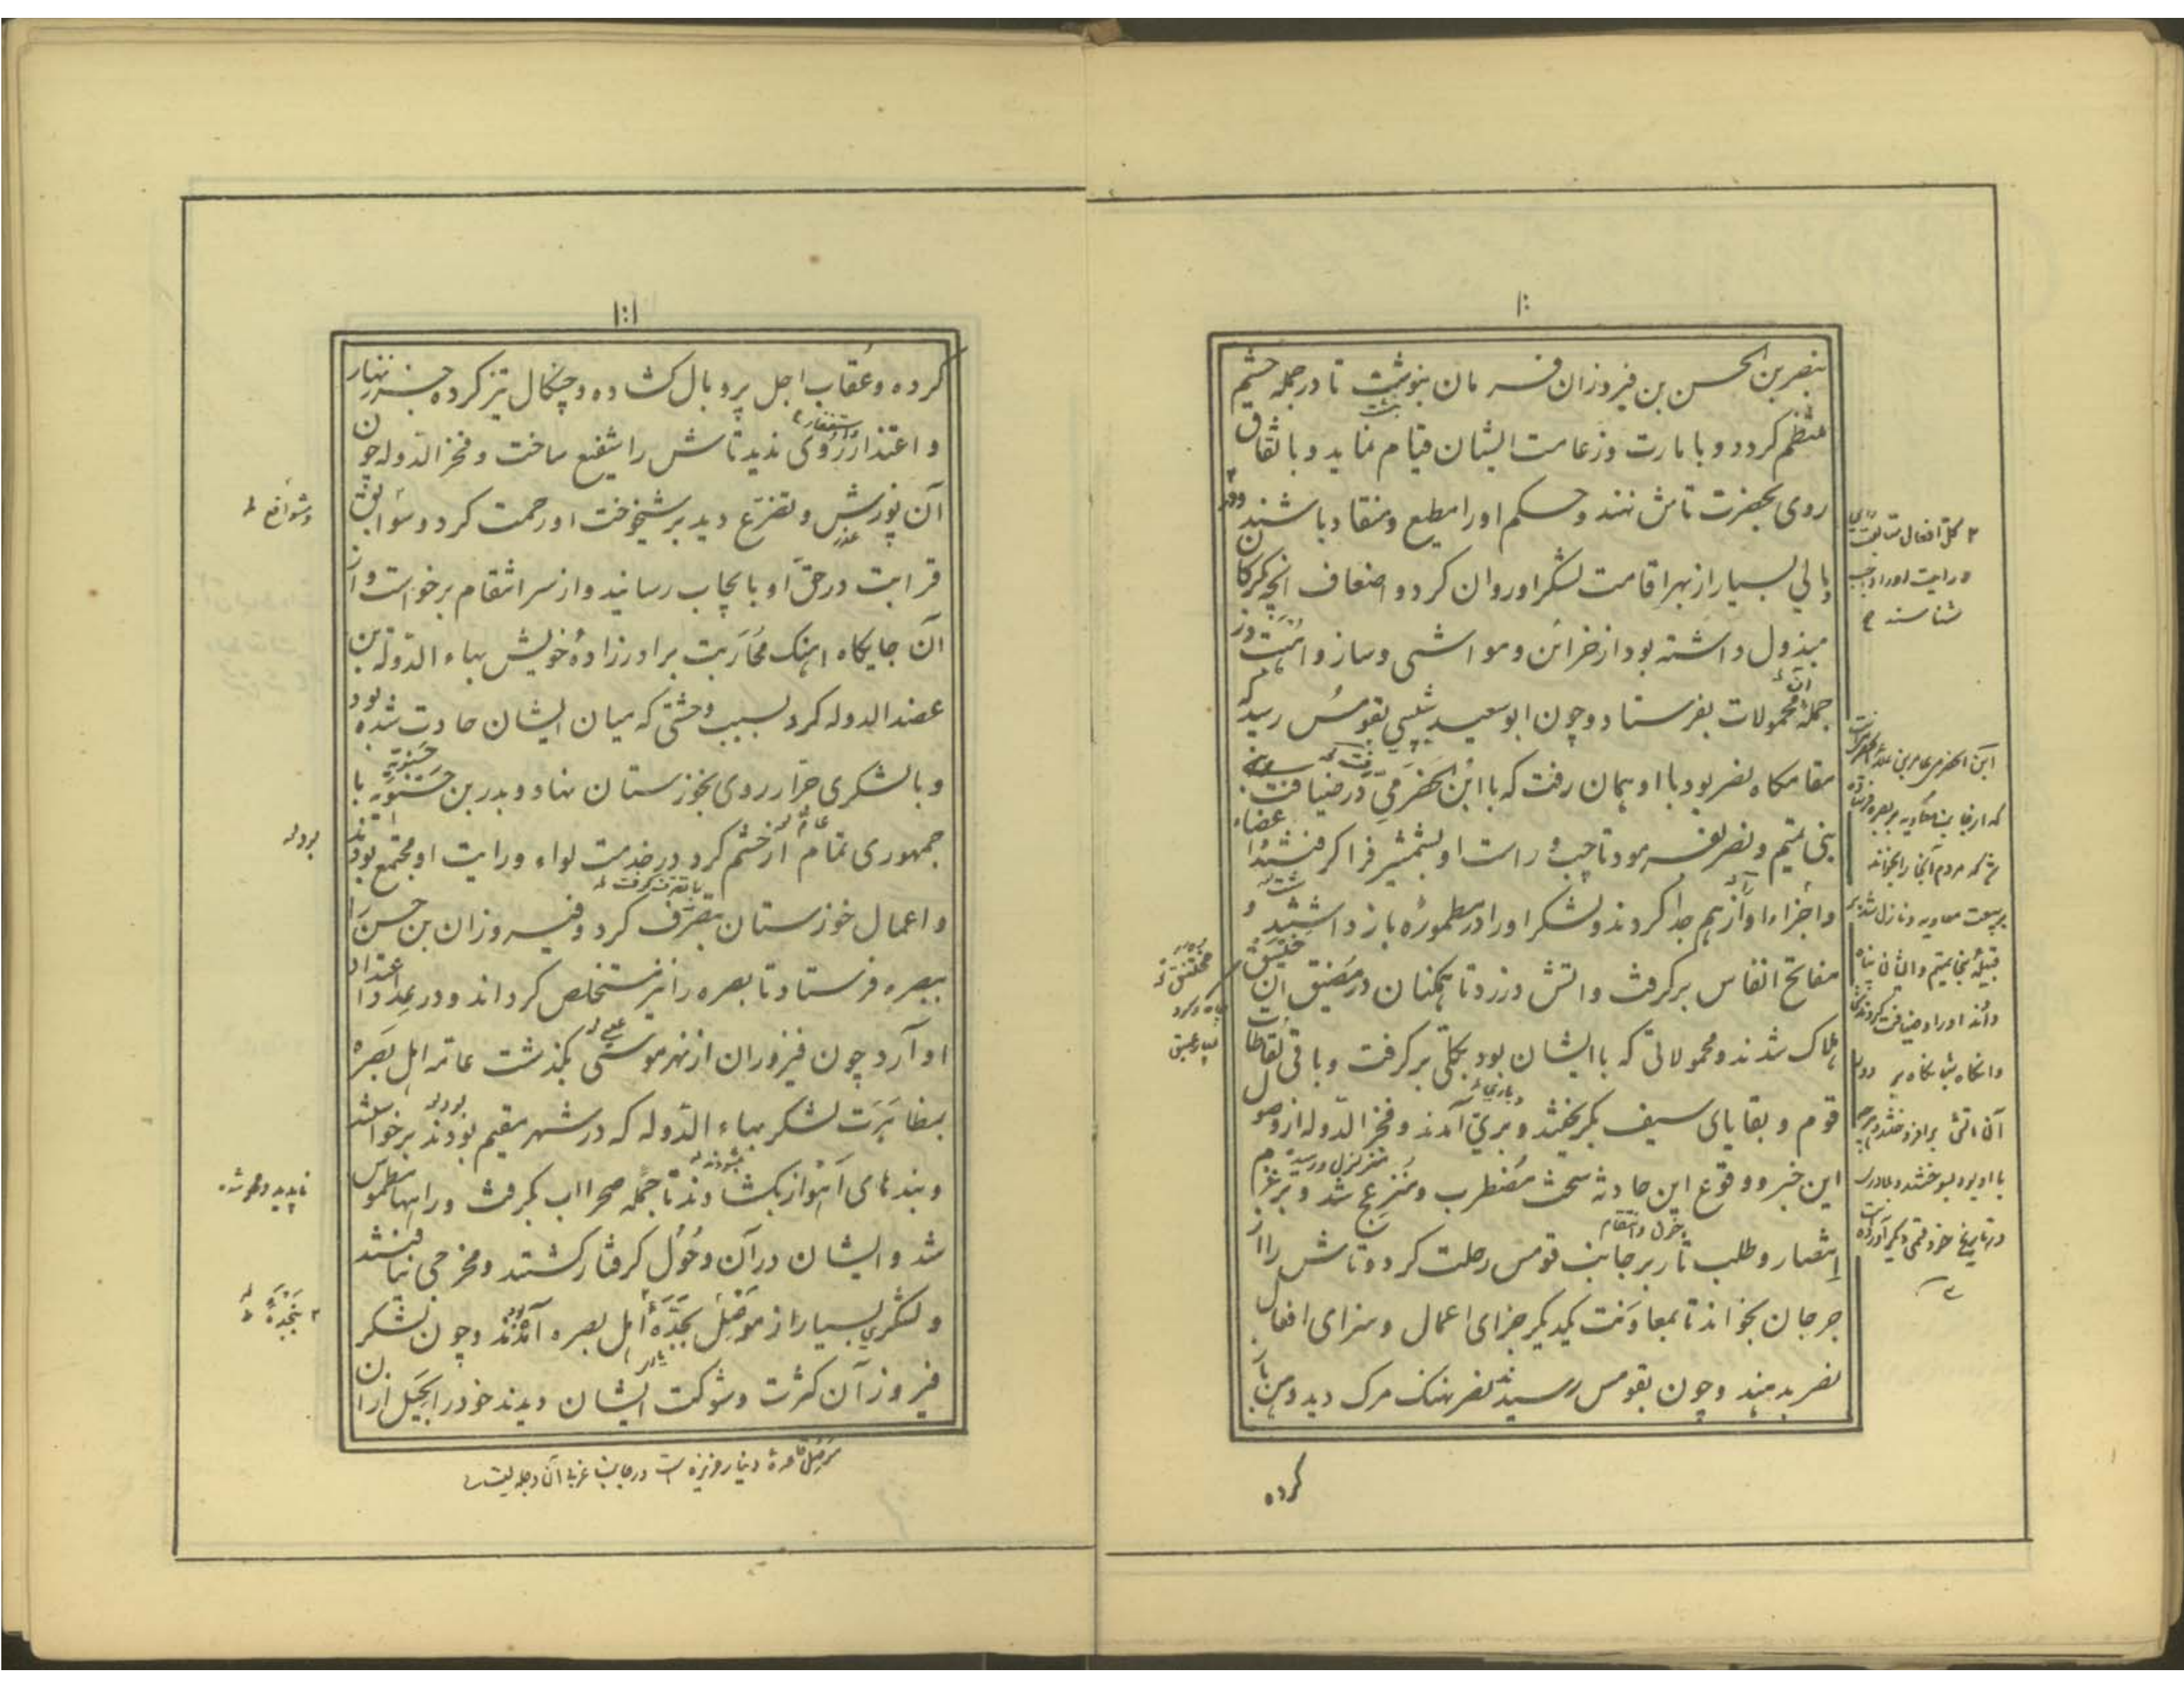 بنصر بن الحسن بن فیروزان فرمان بنوشت تا در جمله حشم
منتظم کردد و بامارت و زعامت ایشان قیام نماید و باتفاق
روی بحضرت تاش نهند و حکم اورا مطیع و منقاد باشند
و مالی بسیار از بهر اقامت لشکر او روان کرد و اضعاف انچه کرکان
مبذول داشته بود از خزائن و مواشی و ساز و اهبت
جملهٔ محمولات بفرستاد و چون ابو سعید شیبی بقومس رسید که
مقامکاه نصر بود با او همان رفت که با ابن الحضرمی در ضیافت
بنی تمیم و نصر بفرمود تا چپ و راست او بشمشیر فرا کرفتند اعضاء
و اجزاء او از هم جدا کردند و لشکر اورا در مطموره باز داشتند و
مفاتح انفاس برکرفت و اتش در زد تا همکنان در مضیق ان خنیق
هلاک شدند و محمولاتی که با ایشان بود بکلی برکرفت و باقی لقاطات
قوم و بقایای سیف بکریختند و بری آمدند و فخر الدوله از وصول
این خبر و وقوع این حادثه سخت مضطرب و منزعج شد و بر عزم
انتصار و طلب ثار بر جانب قومس رحلت کرد و تاش را از
جرجان بخواند تا بمعاونت یکدیکر جزای اعمال و سزای افعال
نصر بدهند و چون بقومس رسید نصر نهنک مرک دید دهن باز
کرده
ابن الحضرمی عامر بن
که از جانب معاویه ببصره فرستاده
شد که مردم آنجا را بخواند
ببیعت معاویه و نازل شد بر
قبیلهٔ بنی تمیم و ایشان پناه
دادند اورا و ضیافت کردند
شناسند
۱۰۱
کرده و عقاب اجل پر و بال کشاده و چنکال تیز کرده جز زنهار
و اعتذار روی ندید تاش را شفیع ساخت و فخر الدوله چون
آن پوزش و تضرع دید بر شیخوخت او رحمت کرد و سوابق
قرابت در حق او بایجاب رسانید و از سر انتقام برخواست و از
آن جایکاه اهنک محاربت برادرزادهٔ خویش بهاء الدوله بن
عضد الدوله کرد بسبب وحشتی که میان ایشان حادث شده بود
و با لشکری جرار روی بخوزستان نهاد و بدر بن حسنویه با
جمهوری تمام از حشم کرد در خدمت لواء و رایت او مجتمع بودند
و اعمال خوزستان بتصرف کرد و فیروزان بن حسن را
ببصره فرستاد تا بصره را نیز مستخلص کرداند و در عداد اعتداد
او آرد چون فیروزان از نهر موسی بکذشت عامه اهل بصره
بمظاهرت لشکر بهاء الدوله که در شهر مقیم بودند برخواستند
و بندهای اهواز بکشادند تا جمله صحرا اب بکرفت و راهها مطموس
شد و ایشان در آن وحول کرفتار کشتند و مخرجی نیافتند
و لشکری بسیار از موصل بنجدهٔ اهل بصره آمدند و چون لشکر
فیروزان کثرت و شوکت ایشان دیدند خود را بحیل از ان
ناپدید و محو شده